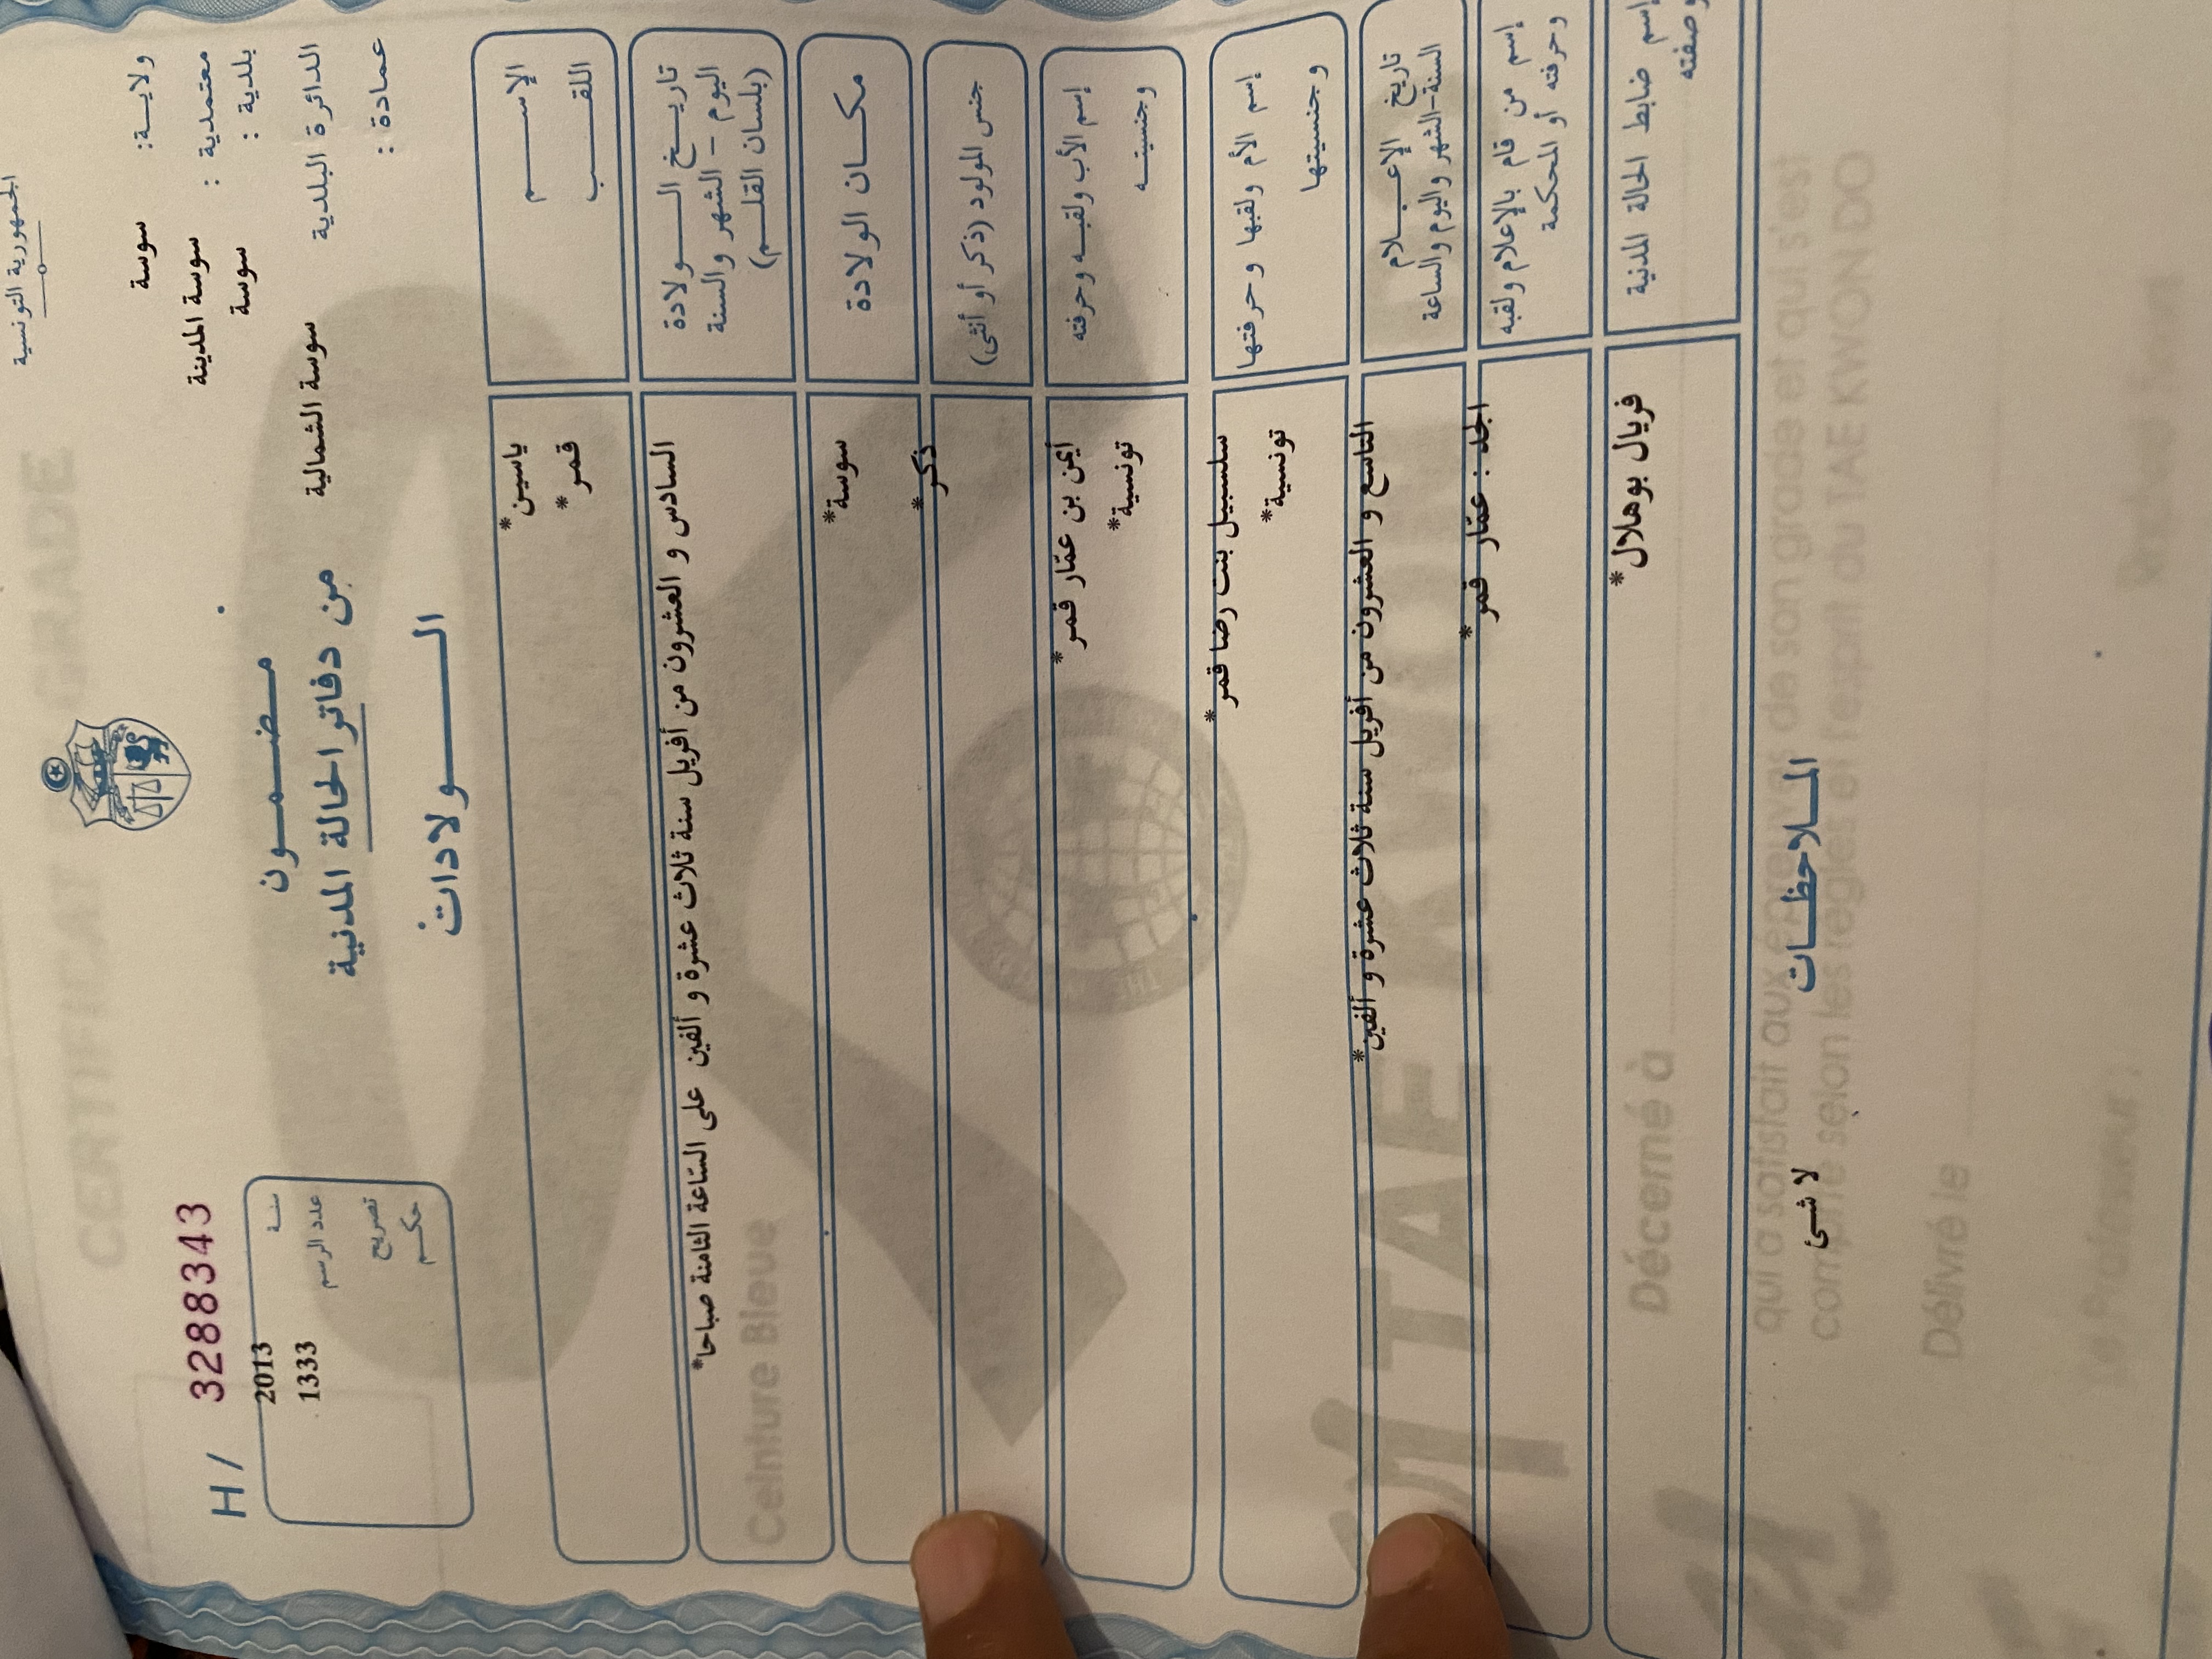 الجمهورية التونسية
ولاية: سوسة
معتمدية : سوسة المدينة
بلدية : سوسة
الدائرة البلدية سوسة الشمالية
عمادة :
مضمون
من دفاتر الحالة المدنية
الولادات
H/ 3288343
سنة 2013
عدد الرسم 1333
تصريح
حكم
الإسم ياسين*
اللقب قمر*
تاريخ الولادة
اليوم - الشهر والسنة
(بلسان القلم)
السادس و العشرون من أفريل سنة ثلاث عشرة و ألفين على السّاعة الثامنة صباحا*
مكان الولادة سوسة*
جنس المولود (ذكر أو أنثى) ذكر*
إسم الأب ولقبه وحرفته أيمن بن عمّار قمر*
وجنسيته تونسية*
إسم الأم ولقبها و حرفتها سلسبيل بنت رضا قمر*
و جنسيتها تونسية*
تاريخ الإعلام
السنة-الشهر واليوم والساعة
التاسع و العشرون من أفريل سنة ثلاث عشرة و ألفين*
إسم من قام بالإعلام ولقبه
وحرفته أو المحكمة
الجد : عمّار قمر*
إسم ضابط الحالة المدنية
وصفته
فريال بوهلال*
الملاحظات
لا شئ
CERTIFICAT GRADE
Ceinture Bleue
TAE KWON
Décerné à
qui a satisfait aux épreuves de son grade et qui s'est
compilé selon les règles et l'esprit du TAE KWON DO
Délivré le
Le Professeur,